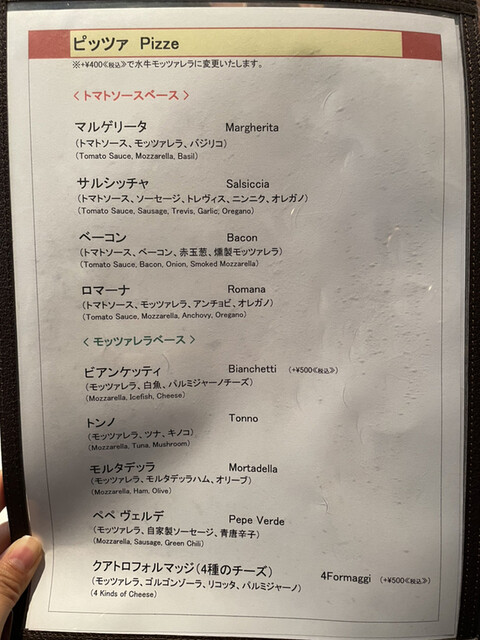 ピッツァ Pizze
※+¥400≪税込≫で水牛モッツァレラに変更いたします。
＜トマトソースベース＞
マルゲリータ Margherita
(トマトソース、モッツァレラ、バジリコ)
(Tomato Sauce, Mozzarella, Basil)
サルシッチャ Salsiccia
(トマトソース、ソーセージ、トレヴィス、ニンニク、オレガノ)
(Tomato Sauce, Sausage, Trevis, Garlic, Oregano)
ベーコン Bacon
(トマトソース、ベーコン、赤玉葱、燻製モッツァレラ)
(Tomato Sauce, Bacon, Onion, Smoked Mozzarella)
ロマーナ Romana
(トマトソース、モッツァレラ、アンチョビ、オレガノ)
(Tomato Sauce, Mozzarella, Anchovy, Oregano)
＜モッツァレラベース＞
ビアンケッティ Bianchetti (+¥500≪税込≫)
(モッツァレラ、白魚、パルミジャーノチーズ)
(Mozzarella, Icefish, Cheese)
トンノ Tonno
(モッツァレラ、ツナ、キノコ)
(Mozzarella, Tuna, Mushroom)
モルタデッラ Mortadella
(モッツァレラ、モルタデッラハム、オリーブ)
(Mozzarella, Ham, Olive)
ペペ ヴェルデ Pepe Verde
(モッツァレラ、自家製ソーセージ、青唐辛子)
(Mozzarella, Sausage, Green Chili)
クアトロフォルマッジ(4種のチーズ) 4Formaggi (+¥500≪税込≫)
(モッツァレラ、ゴルゴンゾーラ、リコッタ、パルミジャーノ)
(4 Kinds of Cheese)